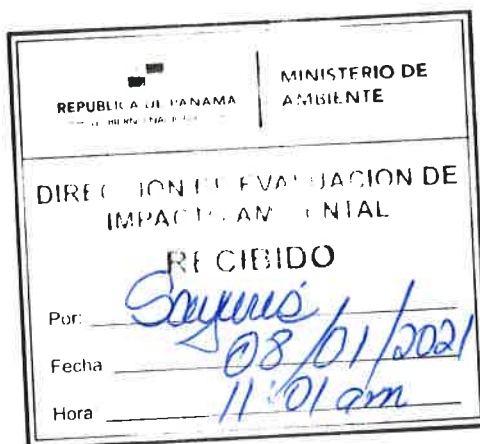 REPUBLICA DE PANAMA
MINISTERIO DE
AMBIENTE
DIRECCION DE EVALUACION DE
IMPACTO AMBIENTAL
RECIBIDO
Por: Sayuris
Fecha 08/01/2021
Hora 11:01 am